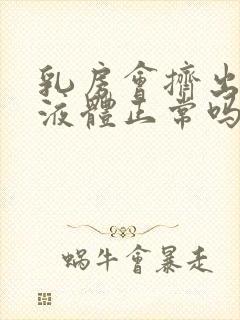 乳房會擠出
液體正常吗
蝸牛會暴走